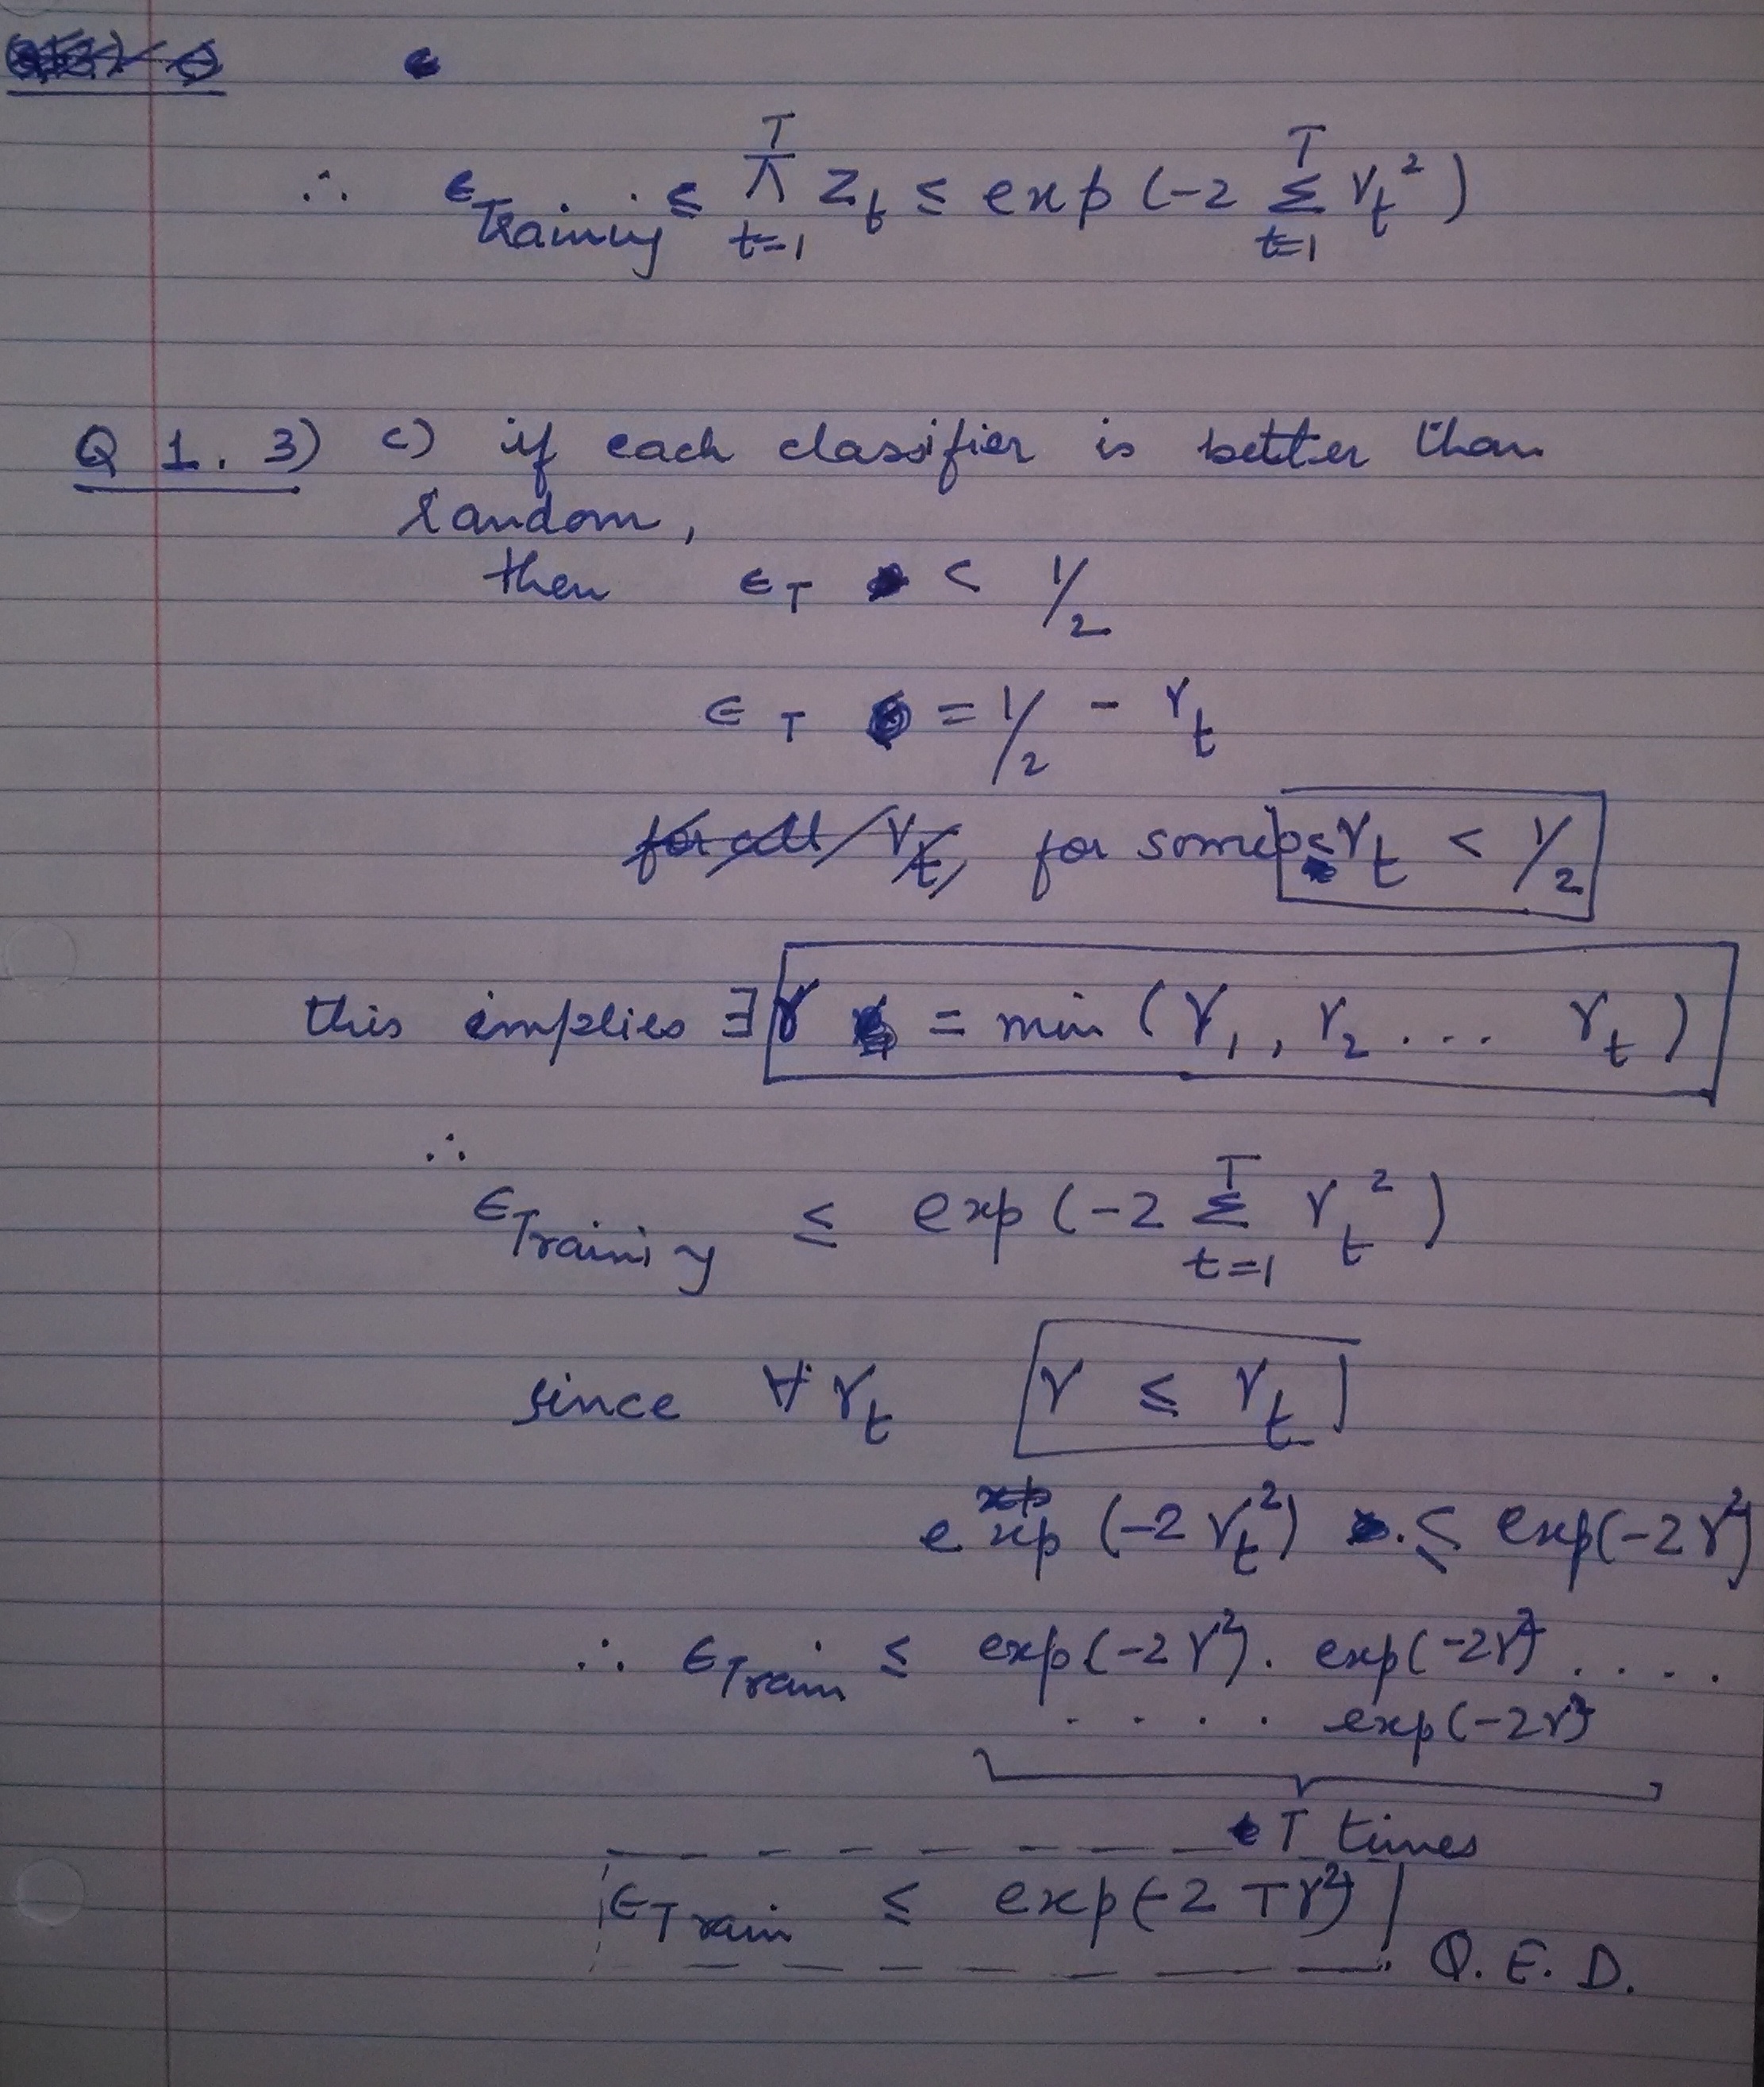 ∴ ϵ_Training ≤ ∏_{t=1}^{T} Z_t ≤ exp (-2 Σ_{t=1}^{T} γ_t²)
Q 1. 3) c) if each classifier is better than
random,
then ϵ_T < 1/2
ϵ_T = 1/2 - γ_t
for all γ_t, for some 0 ≤ γ_t < 1/2
this implies ∃ γ = min (γ_1, γ_2 ... γ_t)
∴
ϵ_Training ≤ exp (-2 Σ_{t=1}^{T} γ_t²)
since ∀ γ_t γ ≤ γ_t
exp (-2 γ_t²) ≤ exp(-2 γ²)
∴ ϵ_Train ≤ exp(-2 γ²). exp(-2γ²) ....
.... exp(-2γ²)
T times
ϵ_Train ≤ exp(-2 T γ²)
Q. E. D.